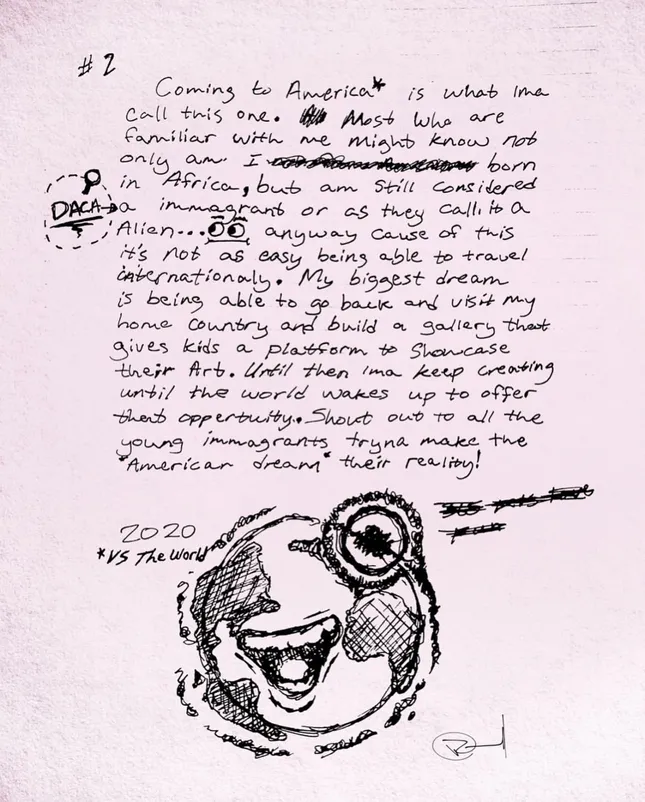 #2
Coming to America* is what Ima
call this one. Most who are
familiar with me might know not
only am I born
in Africa, but am still considered
DACA
a immagrant or as they call it a
Alien... anyway cause of this
it's not as easy being able to travel
internationaly. My biggest dream
is being able to go back and visit my
home country and build a gallery that
gives kids a platform to showcase
their Art. Until then Ima keep creating
until the world wakes up to offer
that oppertuity. Shout out to all the
young immagrants tryna make the
"American dream" their reality!
2020
*VS The World